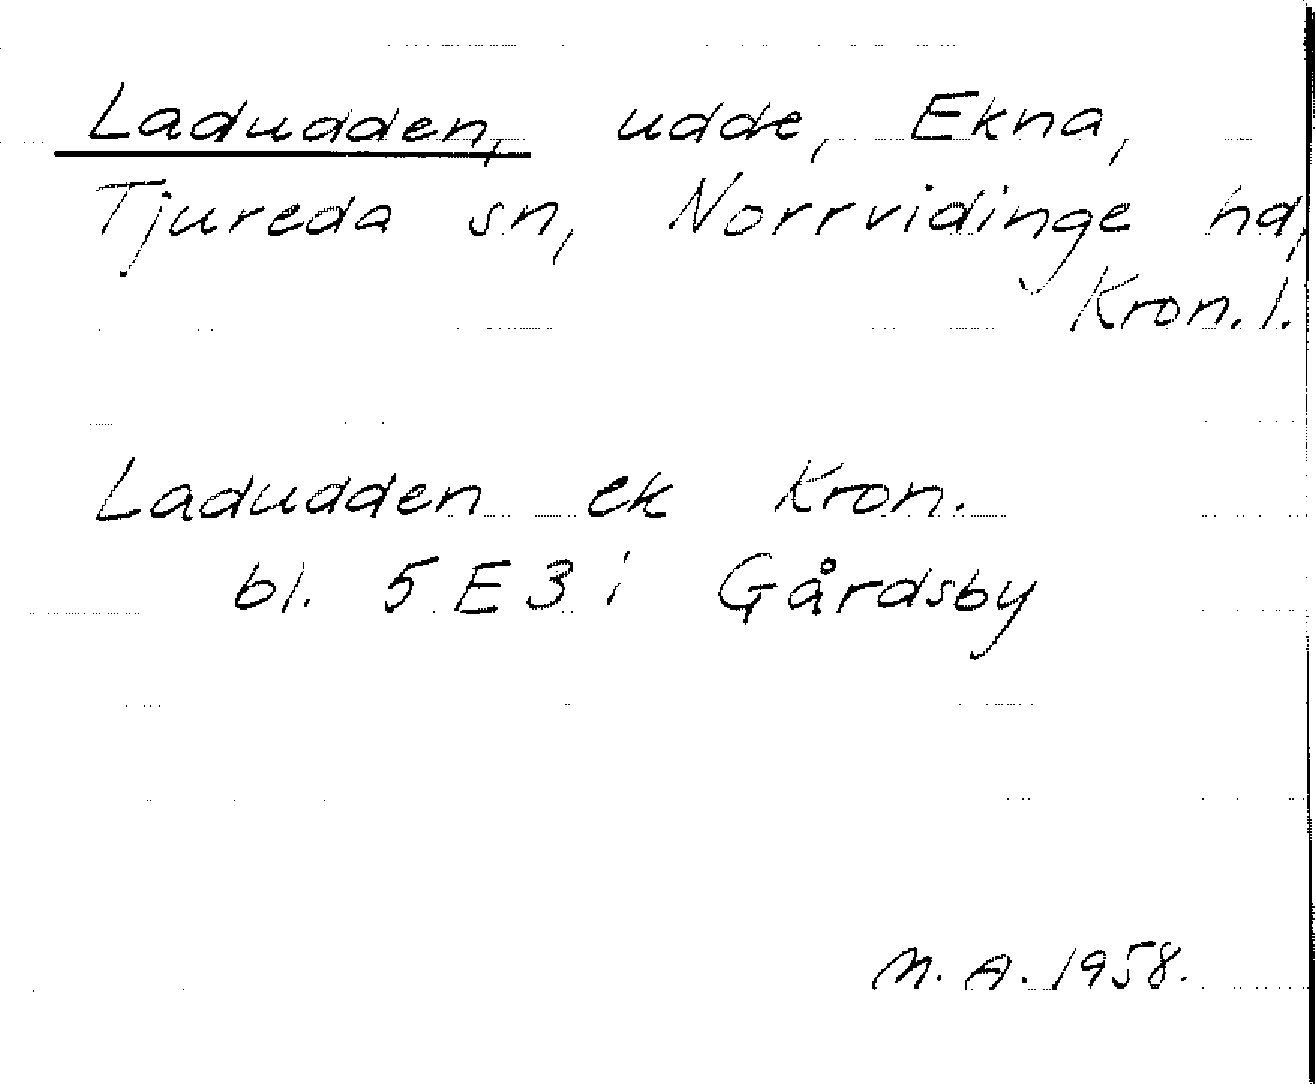 Ladudden, udde, Ekna,
Tjureda sn, Norrvidinge hd,
Kron. l.
Ladudden ek Kron.
bl. 5 E 3 i Gårdsby
M. A. 1958.